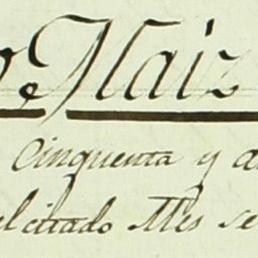 Maiz
Cinquenta y
el citado Mes se